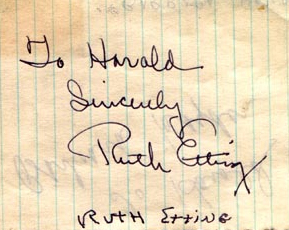 To Harald
Sincerely
Ruth Etting
RUTH ETTING